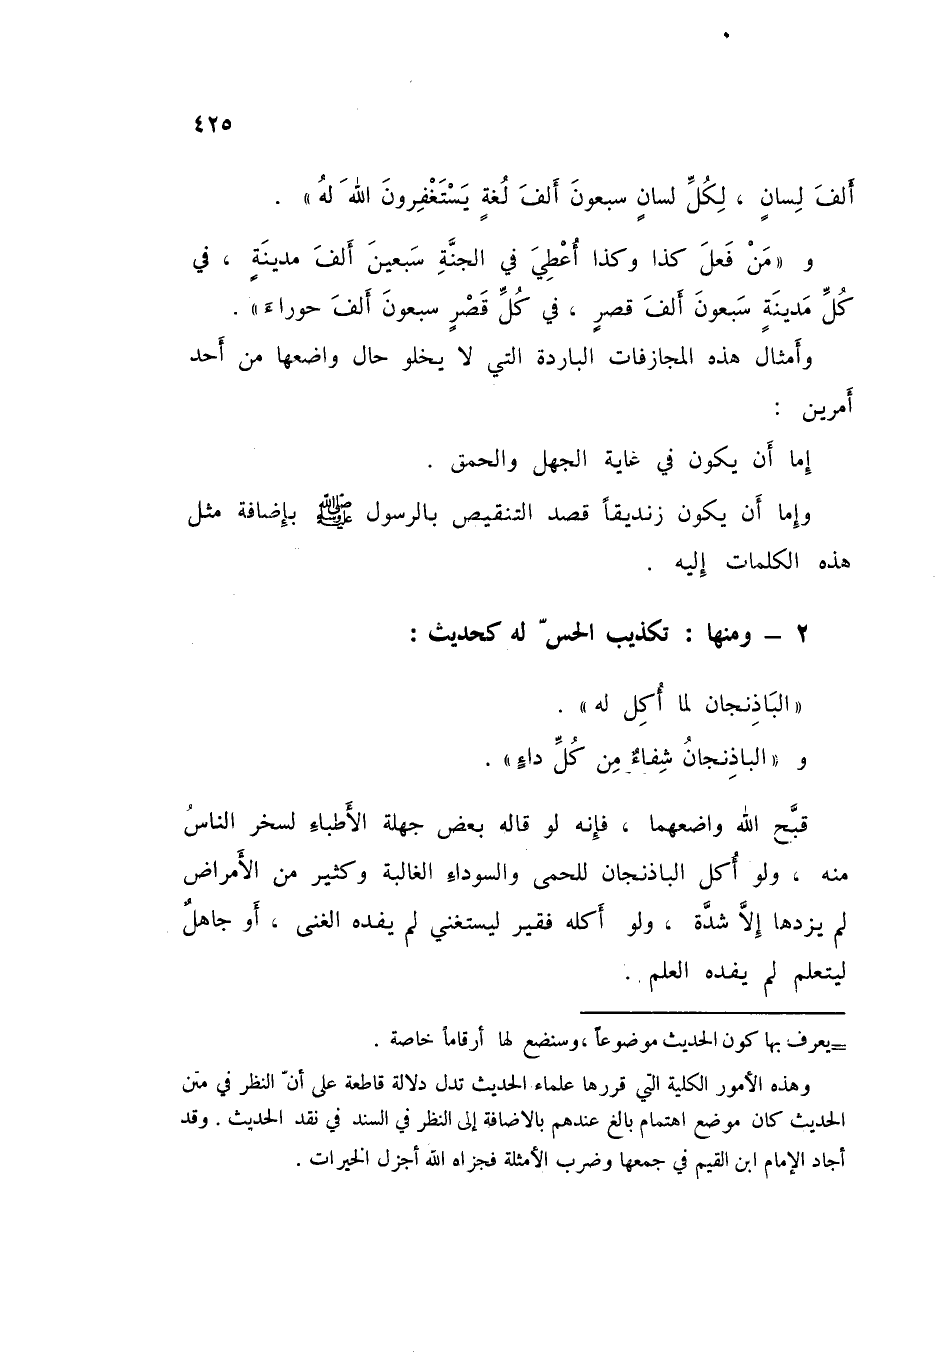 ٤٢٥
أَلفَ لِسانٍ ، لِكُلِّ لسانٍ سبعونَ أَلفَ لُغةٍ يَسْتَغْفِرونَ اللهَ لهُ» .
و «مَنْ فَعلَ كذا وكذا أُعْطِيَ في الجنَّةِ سَبعينَ أَلفَ مدينَةٍ ، في
كُلِّ مَدينَةٍ سَبعونَ أَلفَ قصرٍ ، في كُلِّ قَصْرٍ سبعونَ أَلفَ حوراءَ» .
وأَمثال هذه المجازفات الباردة التي لا يخلو حال واضعها من أَحد
أَمرين :
إما أَن يكون في غاية الجهل والحمق .
وإما أَن يكون زنديقاً قصد التنقيص بالرسول ﷺ بإضافة مثل
هذه الكلمات إليه .
٢ – ومنها : تكذيب الحسّ له كحديث :
«البَاذِنجان لما أُكِل له» .
و «الباذِنجانُ شِفاءٌ مِن كُلِّ داءٍ» .
قبَّح الله واضعهما ، فإنه لو قاله بعض جهلة الأَطباءِ لسخر الناسُ
منه ، ولو أُكل الباذنجان للحمى والسوداءِ الغالبة وكثير من الأَمراض
لم يزدها إلاَّ شدَّة ، ولو أَكله فقير ليستغني لم يفده الغنى ، أَو جاهلٌ
ليتعلم لم يفده العلم .
=يعرف بها كون الحديث موضوعاً ،وسنضع لها أرقاماً خاصة .
وهذه الأمور الكلية التي قررها علماء الحديث تدل دلالة قاطعة على أنّ النظر في متن
الحديث كان موضع اهتمام بالغ عندهم بالاضافة إلى النظر في السند في نقد الحديث . وقد
أجاد الإمام ابن القيم في جمعها وضرب الأمثلة فجزاه الله أجزل الخيرات .